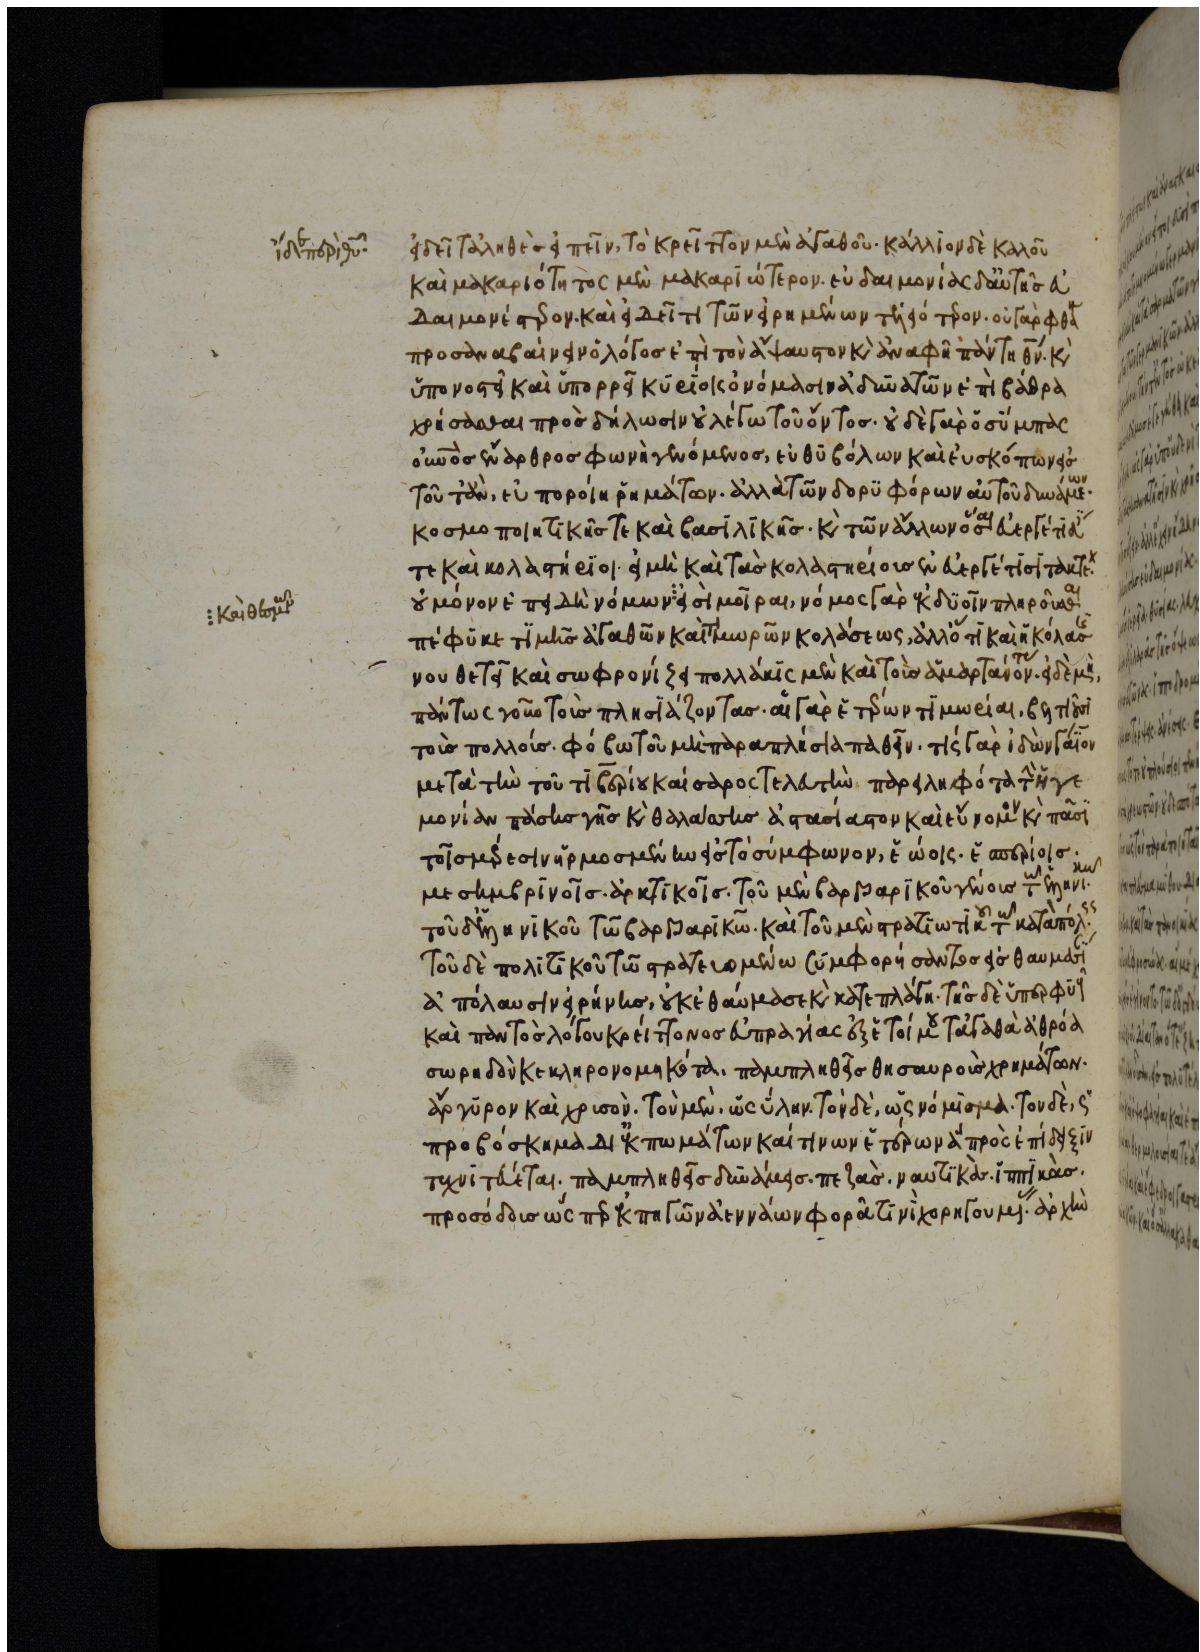 ἰδοὺ περὶ θυ
εἰ δεῖ τἀληθὲς εἰπεῖν, τὸ κρεῖττον μὲν ἀγαθοῦ· κάλλιον δὲ καλοῦ
καὶ μακαριότητος μὲν μακαριώτερον· εὐδαιμονίας δ' αὐτῆς εὐ
δαιμονέστερον· καὶ εἰ δεῖ τι τῶν εἰρημένων τελειότερον· οὐ γὰρ φθά
προσαναβαίνειν ὁ λόγος ἐπὶ τὸν ἄψαυστον κὶ ἀναφῆ πάντη θν· κὶ
ὑπονοστεῖ καὶ ὑπορρεῖ κυρίοις ὀνόμασιν ἀδυνατῶν ἐπιβάθρα
χρήσασθαι πρὸς δήλωσιν οὐ λέγω τοῦ ὄντος· οὐδὲ γὰρ ὁ σύμπας
οὐνὸς ἔναρθρος φωνὴ γενόμενος, εὐθυβόλων καὶ εὐσκόπων εἰς
τοῦτ' ἂν, εὐποροίη ῥημάτων· ἀλλὰ τῶν δορυφόρων αὐτοῦ δυνάμεων·
κοσμοποιητικῆς τε καὶ βασιλικῆς· κὶ τῶν ἄλλων ὅσαι εὐεργέτιδ
τε καὶ κολαστήριοι· εἰ μὴ καὶ τὰς κολαστηρίους ἐν εὐεργέτισι τακτέ
οὐ μόνον ἐπειδὴ νόμων ⁝ εἰσὶ μοῖραι, νόμος γὰρ ἐκ δυοῖν πληροῦσθαι
⁝ καὶ θεσμῶν
πέφυκε τιμῆς ἀγαθῶν καὶ πονηρῶν κολάσεως, ἀλλ' ὅτι καὶ ἡ κόλασις
νουθετεῖ καὶ σωφρονίζει πολλάκις μὲν καὶ τοὺς ἁμαρτάνοντας· εἰ δὲ μὴ,
πάντως γοῦν τοὺς πλησιάζοντας· αἱ γὰρ ἑτέρων τιμωρίαι, βελτιοῦσι
τοὺς πολλούς· φόβω τοῦ μὴ παραπλήσια παθεῖν· τίς γὰρ ἰδὼν γάϊον
μετὰ τὴν τοῦ τιβερίου καίσαρος τελευτὴν παρειληφότα τὴν ἡγε
μονίαν πάσης γῆς κὶ θαλάσσης ἀστασίαστον καὶ εὔνομον κὶ πᾶσι
τοῖς μέρεσιν ἡρμοσμένην εἰς τὸ σύμφωνον, ἑώοις· ἑσπερίοις·
μεσημβρινοῖς· ἀρκτικοῖς· τοῦ μὲν βαρβαρικοῦ γένους τῶ ἑλληνικῶ·
τοῦ δ' ἑλληνικοῦ τῶ βαρβαρικῶ· καὶ τοῦ μὲν στρατιωτικοῦ τῶ κατὰ πόλεις·
τοῦ δὲ πολιτικοῦ τῶ στρατευομένω συμφορήσαντος εἰς θαυμασι
ἀπόλαυσιν εἰρήνης, οὐκ ἐθαύμασε κὶ κατεπλάγη· τῆς δὲ ὑπερφυοῦς
καὶ παντὸς λόγου κρείττονος εὐπραγίας ἐξ ἑτοίμου τἀγαθὰ ἀθρόα
σωρηδὸν κεκληρονομηκότα, παμπληθεῖς θησαυροὺς χρημάτων·
ἄργυρον καὶ χρυσὸν· τὸν μὲν, ὡς ὕλην· τὸν δὲ, ὡς νόμισμα· τὸν δὲ, ὡς
προβόσκημα δι' ἐκπωμάτων καί τινων ἑτέρων ἃ πρὸς ἐπίδειξιν
τεχνιτεύεται· παμπληθεῖς δυνάμεις· πεζὰς· ναυτικὰς· ἱππικὰς·
προσόδους ὥσπερ ἐκ πηγῶν ἀεννάων φορᾶ τινὶ χορηγουμένας· ἀρχὴν